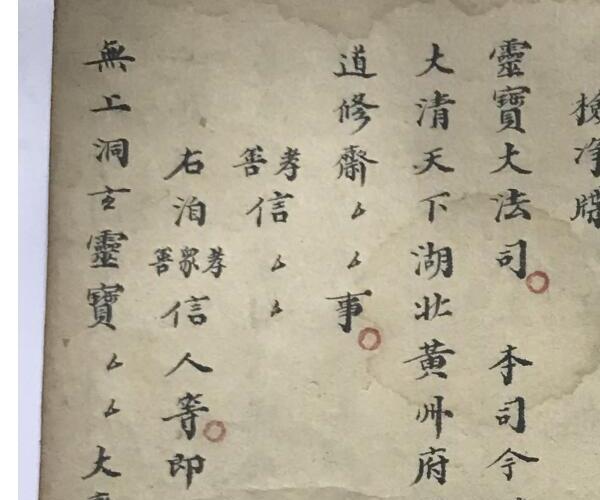 檢淨牒
靈寶大法司 本司今
大清天下湖北黃州府
道修齋厶厶事
孝善信厶厶
右洎孝眾善信人等即
無上洞玄靈寶厶厶大